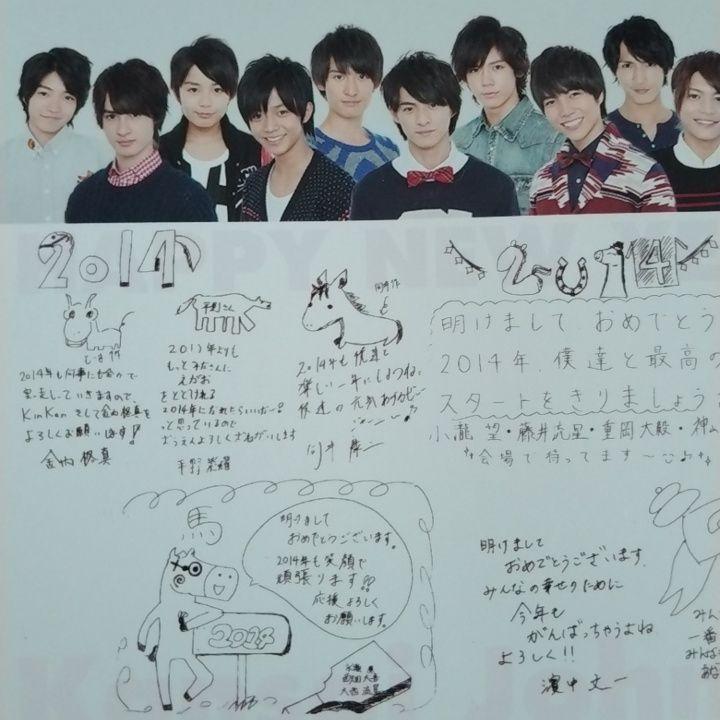 HAPPY NEW
2014
平野さん
2014年も何事にも全力で
突っ走していきますので、
KinKan そして金内柊真を
よろしくお願いします!
金内柊真
2013年よりも
もっとみなさんに
えがおを
とどけれる
2014年になれたらいいなー!
っと思っているので
おうえんよろしくおねがいします
平野紫耀
2014年も僕達と
楽しい一年にしようね。
僕達の元気
向井康二
2014
明けまして おめでとう
2014年 僕達と最高の
スタートをきりましょう
小瀧 望・藤井流星・重岡大毅・神山
会場で待ってます
馬
明けまして
おめでとうございます。
2014年も笑顔で
頑張ります!!
応援よろしく
お願いします。
2014
永瀬 廉
西畑大吾
大西流星
明けまして
おめでとうございます。
みんなの幸せのために
今年も
がんばっちゃうよね
よろしく!!
濵中文一
みん
一番
みんな